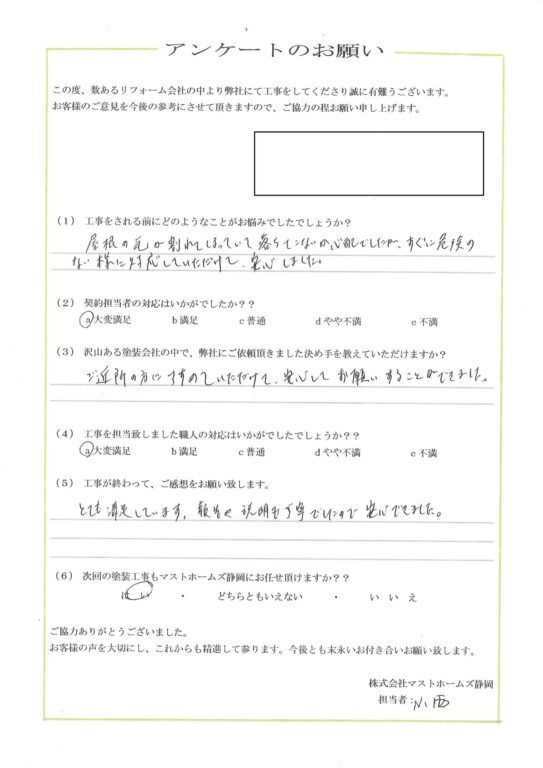 アンケートのお願い
この度、数あるリフォーム会社の中より弊社にて工事をしてくださり誠に有難うございます。
お客様のご意見を今後の参考にさせて頂きますので、ご協力の程お願い申し上げます。
(1) 工事をされる前にどのようなことがお悩みでしたでしょうか？
屋根の瓦が割れてしまっていて落ちてこないか心配でしたが、すぐに危険の
ない様に対応していただけて、安心しました。
(2) 契約担当者の対応はいかがでしたか？？
a大変満足 b満足 c普通 dやや不満 e不満
(3) 沢山ある塗装会社の中で、弊社にご依頼頂きました決め手を教えていただけますか？
ご近所の方にすすめていただけて、安心してお願いすることができました。
(4) 工事を担当致しました職人の対応はいかがでしたでしょうか？
a大変満足 b満足 c普通 dやや不満 e不満
(5) 工事が終わって、ご感想をお願い致します。
とても満足しています。報告や説明も丁寧でしたので安心できました。
(6) 次回の塗装工事もマストホームズ静岡にお任せ頂けますか？？
はい ・ どちらともいえない ・ いいえ
ご協力ありがとうございました。
お客様の声を大切にし、これからも精進して参ります。今後とも末永いお付き合いお願い致します。
株式会社マストホームズ静岡
担当者:小西